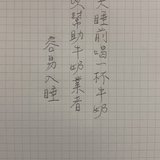 天睡前喝一杯牛奶
以幫助牛奶業者
容易入睡